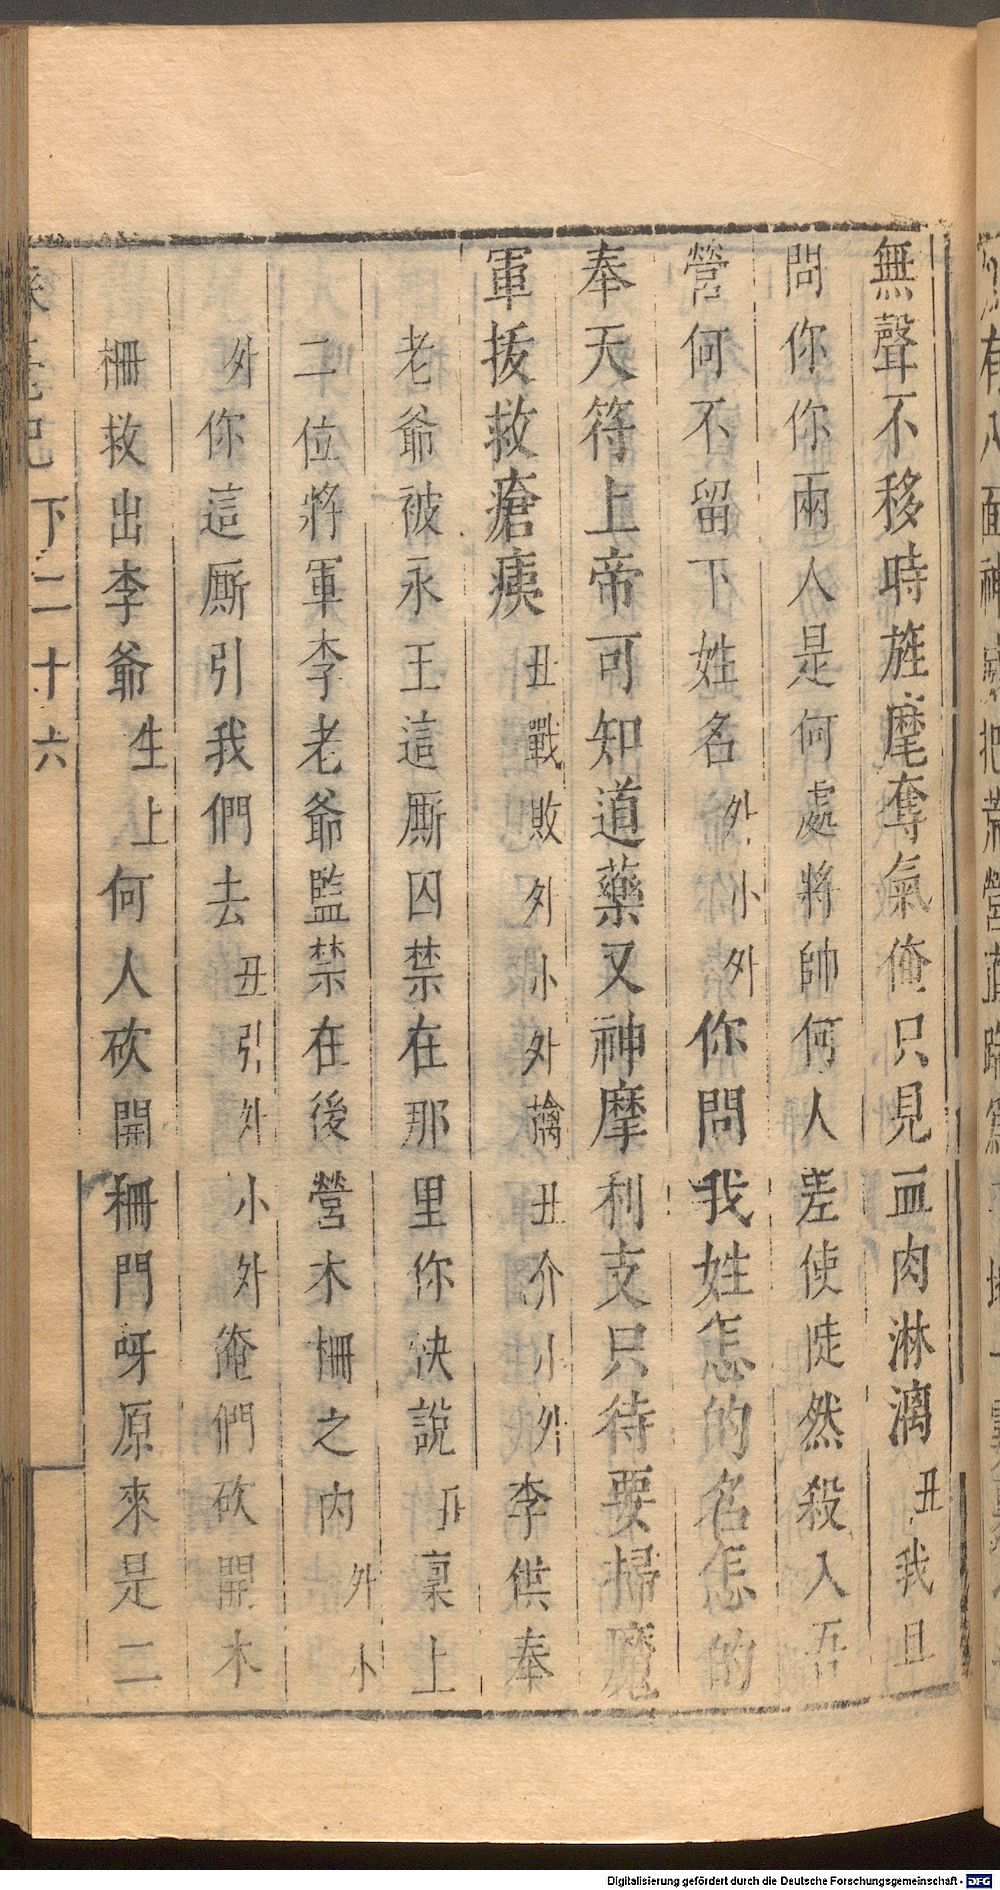 無聲不移時旌麾奪氣俺只見血肉淋漓丑我且
問你你兩人是何處將帥何人差使陡然殺入吾
營何不留下姓名外小外你問我姓怎的名怎的
奉天符上帝可知道藥叉神摩利支只待要掃魔
軍拔救瘡痍丑戰敗外小外擒丑介小外李供奉
老爺被永王這厮囚禁在那里你快說丑稟上
二位將軍李老爺監禁在後營木柵之内外小
外你這厮引我們去丑引外小外俺們砍開木
柵救出李爺生上何人砍開柵門呀原來是二
下二十六
Digitalisierung gefördert durch die Deutsche Forschungsgemeinschaft - DFG